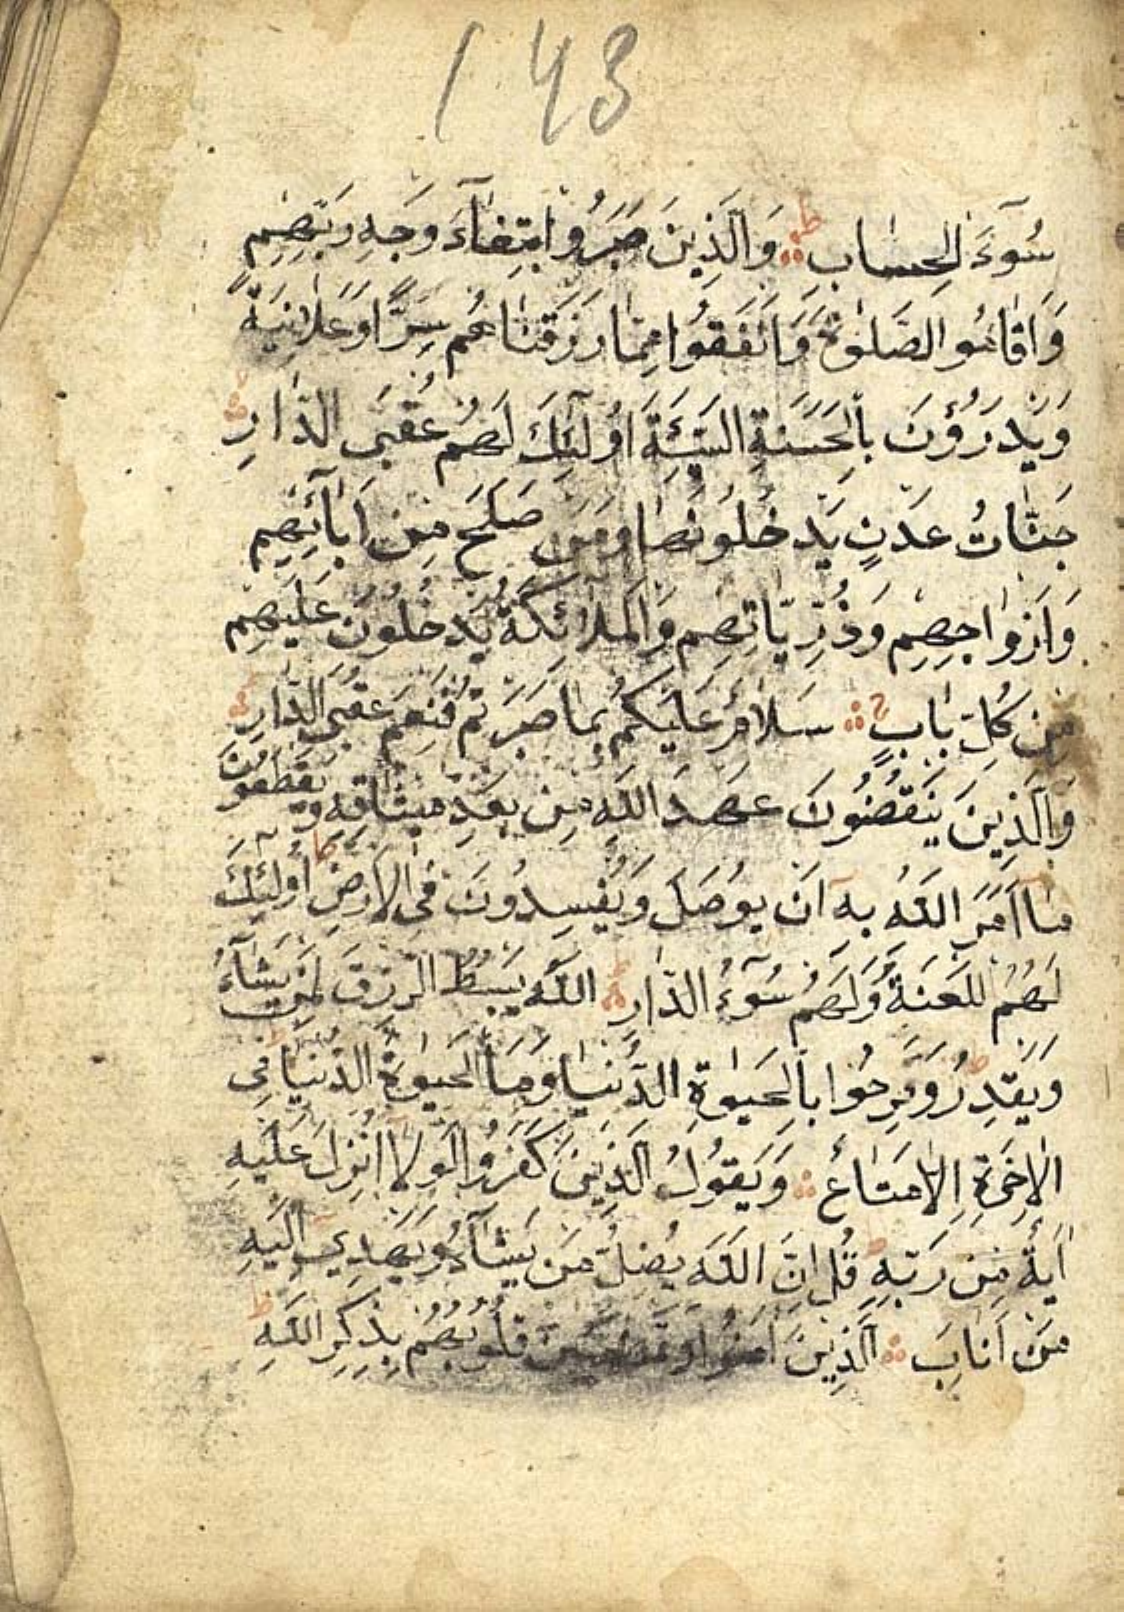 143
سُوٓءَ الحِسَابِ وَالَّذِينَ صَبَرُوا ابْتِغَآءَ وَجْهِ رَبِّهِمْ
وَاَقَامُوا الصَّلٰوةَ وَاَنْفَقُوا مِمَّا رَزَقْنَاهُمْ سِرًّا وَعَلَانِيَةً
وَيَدْرَؤُنَ بِالْحَسَنَةِ السَّيِّئَةَ اُولٰٓئِكَ لَهُمْ عُقْبَى الدَّارِ
جَنَّاتُ عَدْنٍ يَدْخُلُونَهَا وَمَنْ صَلَحَ مِنْ اٰبَآئِهِمْ
وَاَزْوَاجِهِمْ وَذُرِّيَّاتِهِمْ وَالْمَلَآئِكَةُ يَدْخُلُونَ عَلَيْهِمْ
مِنْ كُلِّ بَابٍ سَلَامٌ عَلَيْكُمْ بِمَا صَبَرْتُمْ فَنِعْمَ عُقْبَى الدَّارِ
وَالَّذِينَ يَنْقُضُونَ عَهْدَ اللّٰهِ مِنْ بَعْدِ مِيثَاقِهِ وَيَقْطَعُونَ
مَا اَمَرَ اللّٰهُ بِهٓ اَنْ يُوصَلَ وَيُفْسِدُونَ فِى الْاَرْضِ اُولٰٓئِكَ
لَهُمُ اللَّعْنَةُ وَلَهُمْ سُوٓءُ الدَّارِ اللّٰهُ يَبْسُطُ الرِّزْقَ لِمَنْ يَشَآءُ
وَيَقْدِرُ وَفَرِحُوا بِالْحَيٰوةِ الدُّنْيَا وَمَا الْحَيٰوةُ الدُّنْيَا فِى
الْاٰخِرَةِ اِلَّا مَتَاعٌ وَيَقُولُ الَّذِينَ كَفَرُوا لَوْلَا اُنْزِلَ عَلَيْهِ
اٰيَةٌ مِنْ رَبِّهِ قُلْ اِنَّ اللّٰهَ يُضِلُّ مَنْ يَشَآءُ وَيَهْدِى اِلَيْهِ
مَنْ اَنَابَ الَّذِينَ اٰمَنُوا وَتَطْمَئِنُّ قُلُوبُهُمْ بِذِكْرِ اللّٰهِ